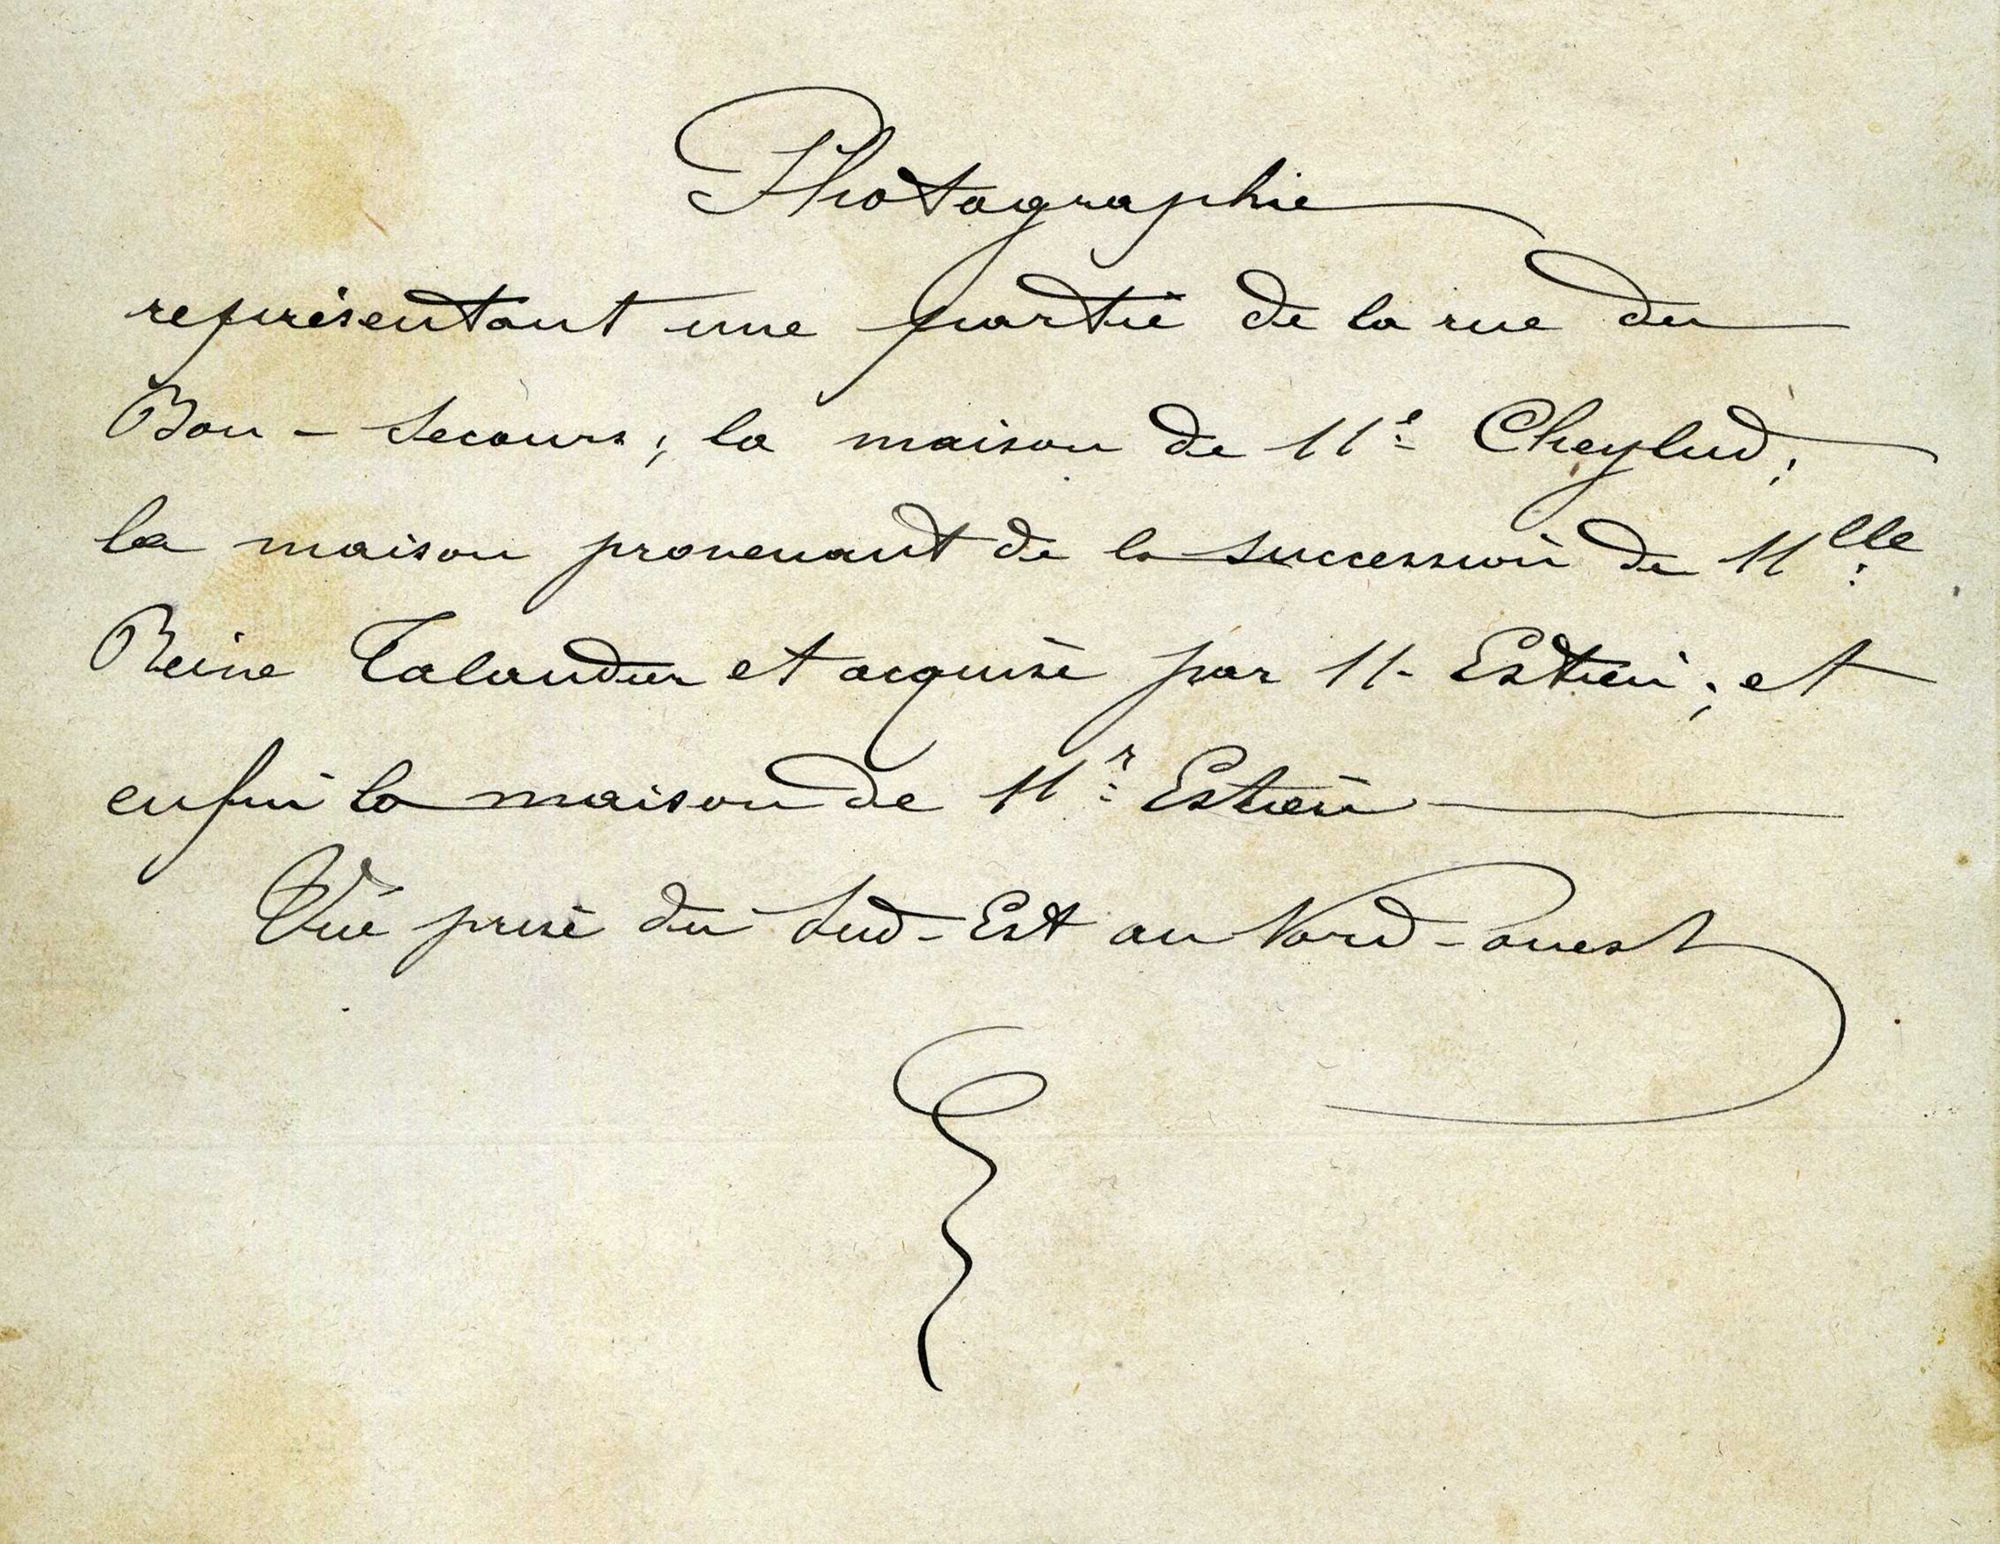 Photographie
représentant une partie de la rue du
Bon-Secours; la maison de Me Cheylud;
la maison provenant de la succession de Mlle
Reine Talandier et acquise par M. Estien; et
enfin la maison de Mr Estien
Vue prise du Sud-Est au Nord-Ouest